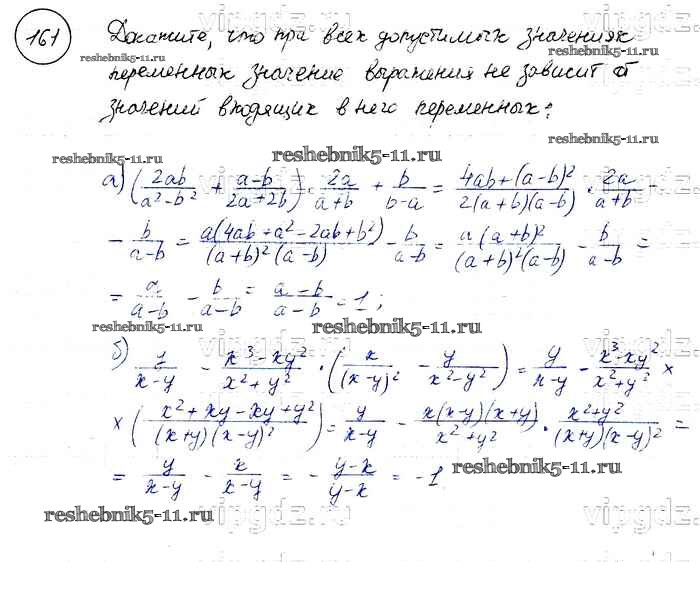 161 Докажите, что при всех допустимых значениях
reshebnik5-11.ru
переменных значение выражения не зависит от
значений входящих в него переменных:
reshebnik5-11.ru
reshebnik5-11.ru
reshebnik5-11.ru
а) (2ab/(a²-b²) + (a-b)/(2a+2b)) · 2a/(a+b) + b/(b-a) = (4ab+(a-b)²)/(2(a+b)(a-b)) · 2a/(a+b) -
- b/(a-b) = a(4ab+a²-2ab+b²)/((a+b)²(a-b)) - b/(a-b) = a(a+b)²/((a+b)²(a-b)) - b/(a-b) =
= a/(a-b) - b/(a-b) = (a-b)/(a-b) = 1;
reshebnik5-11.ru
reshebnik5-11.ru
б) y/(x-y) - (x³-xy²)/(x²+y²) · (x/(x-y)² - y/(x²-y²)) = y/(x-y) - (x³-xy²)/(x²+y²) ×
× ((x²+xy-xy+y²)/((x+y)(x-y)²)) = y/(x-y) - x(x-y)(x+y)/(x²+y²) · (x²+y²)/((x+y)(x-y)²) =
= y/(x-y) - x/(x-y) = - (y-x)/(y-x) = -1
reshebnik5-11.ru
reshebnik5-11.ru
vipgdz.ru